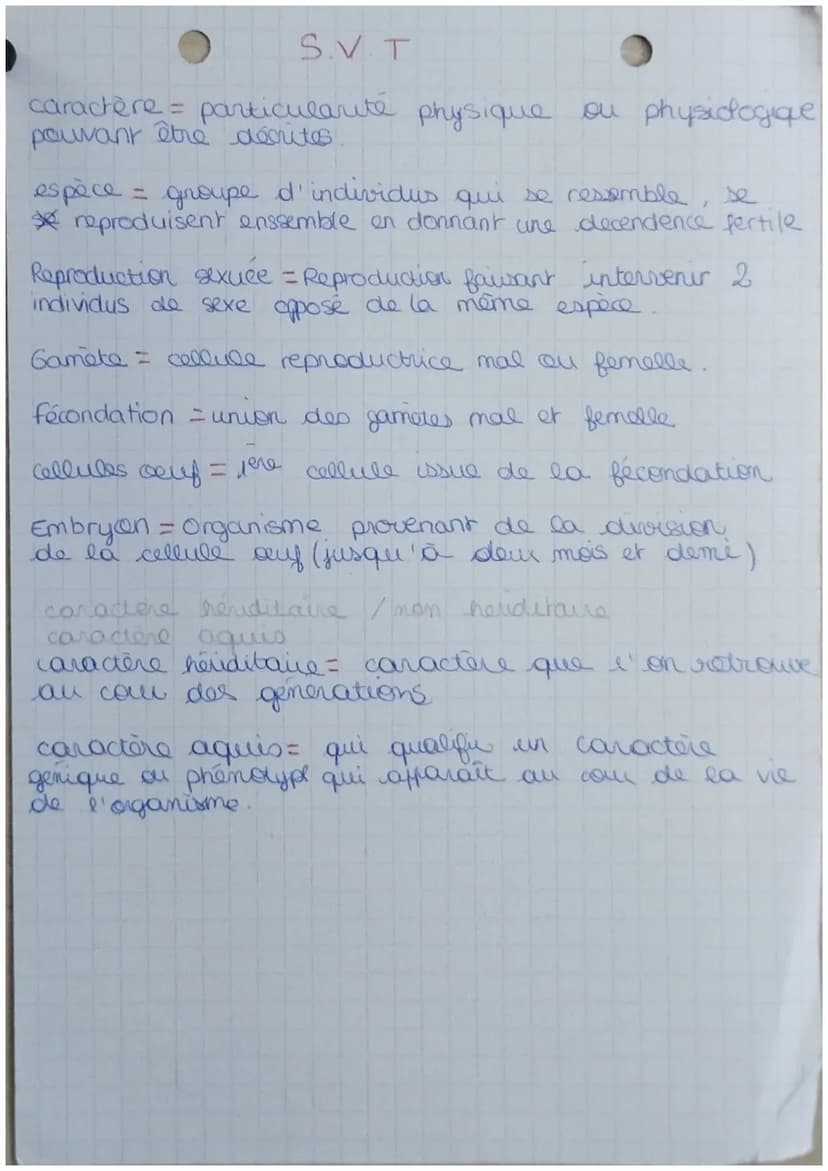 S.V.T
caractère = particularité physique ou physiologique
pouvant être décrites.
espèce = groupe d'individus qui se ressemble, se
reproduisent enssemble en donnant une decendence fertile
Reproduction sexuée = Reproduction faisant intervenir 2
individus de sexe opposé de la même espèce.
Gamète = cellule reproductrice mal ou femelle.
fécondation = union des gamètes mal et femelle
cellules oeuf = 1ère cellule issue de la fécondation
Embryon = Organisme provenant de la division
de la cellule œuf (jusqu'à deux mois et demi)
caractère héréditaire / non héréditaire
caractère aquis
caractère héréditaire = caractère que l'on retrouve
au cour des générations
caractère aquis = qui qualifie un caractère
génique ou phénotype qui apparaît au cour de la vie
de l'organisme.